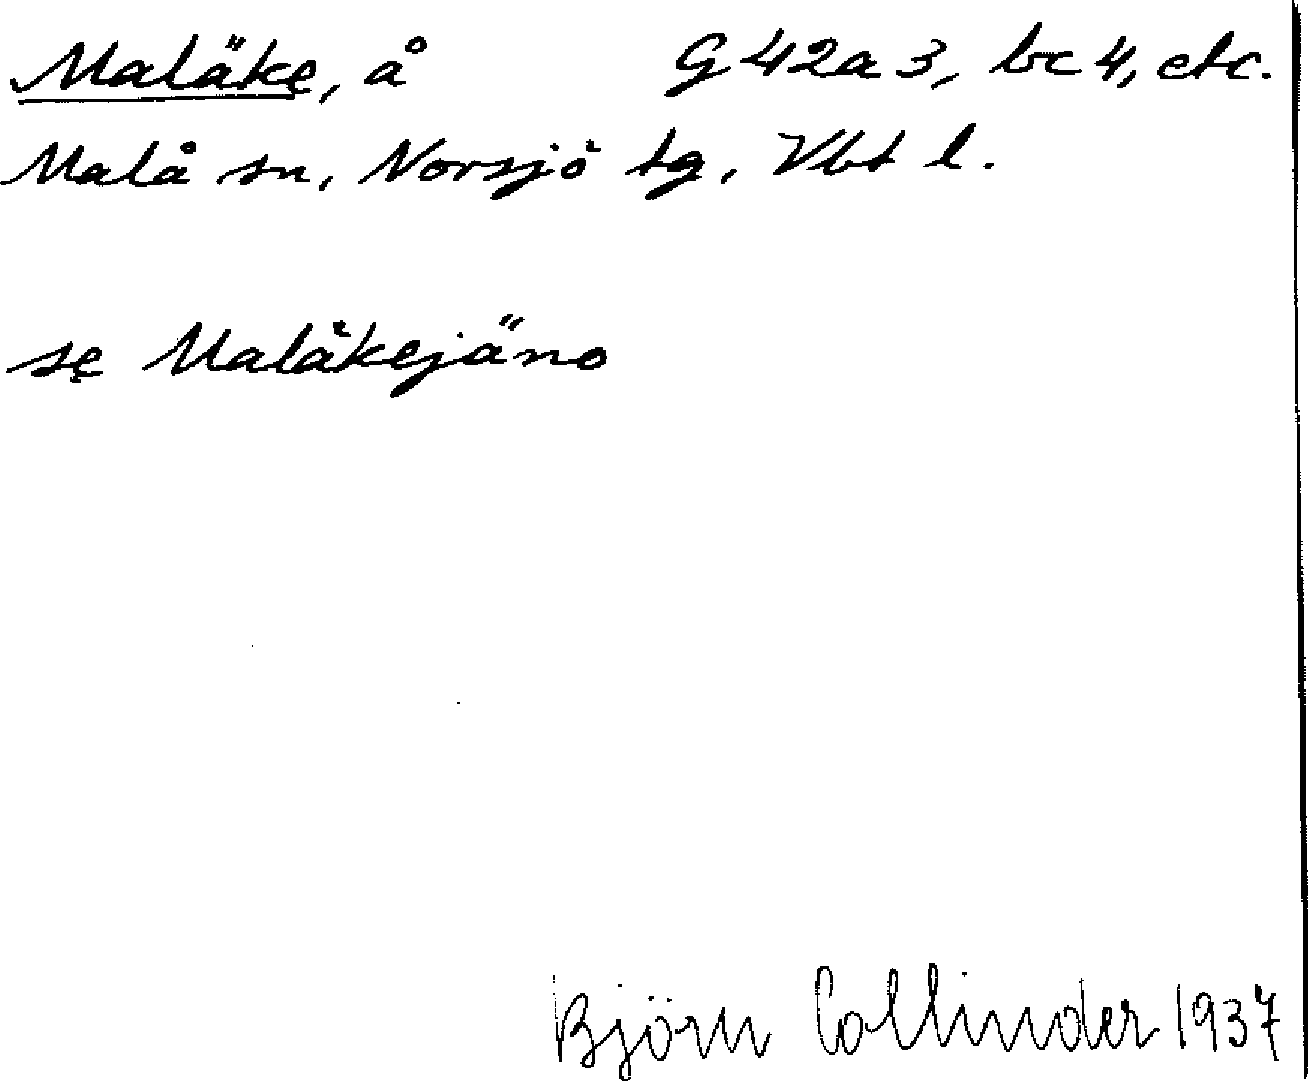 Maläke, å G 42a3, bc4, etc.
Malå sn, Norsjö tg, Vbt l.
se Maläkejäno
Björn Collinder 1937